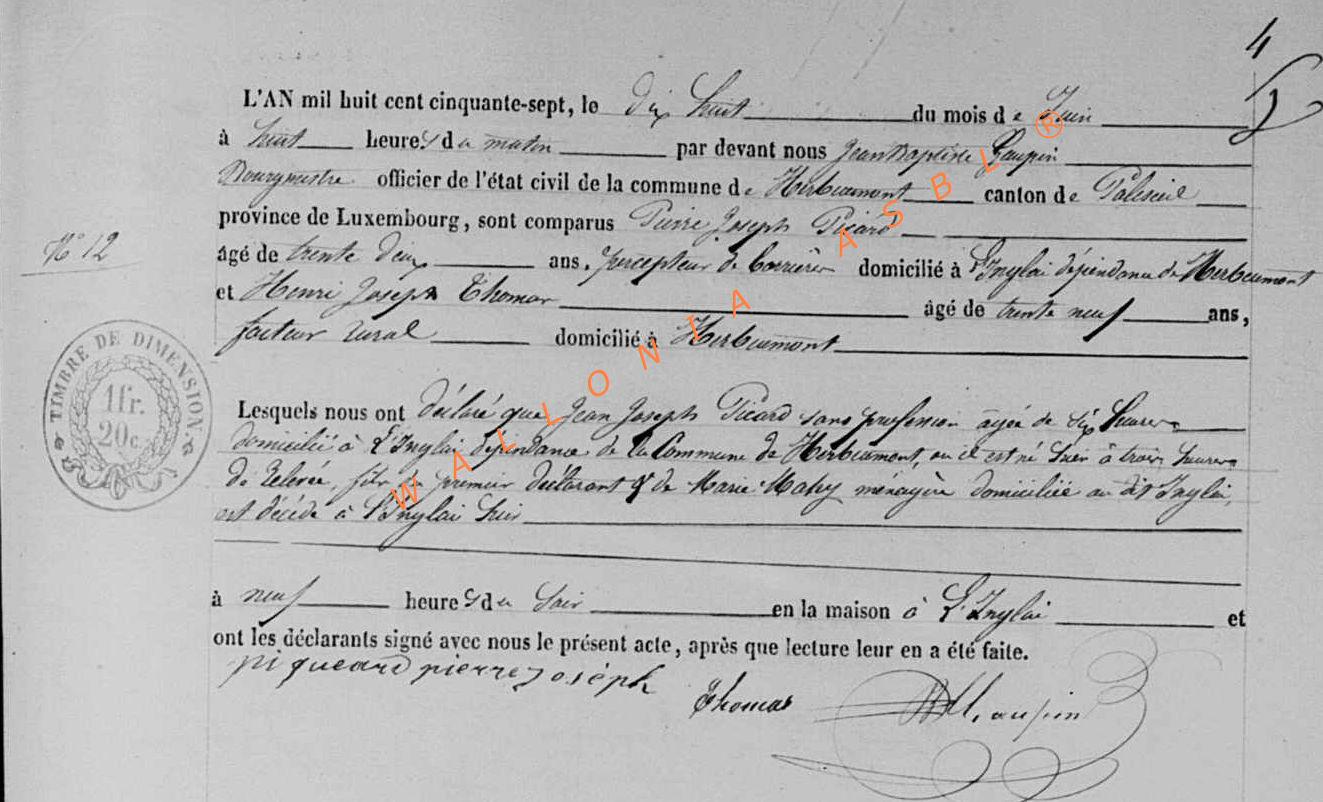 4
L'AN mil huit cent cinquante-sept, le dix huit du mois de Juin
à huit heures du matin par devant nous Jean Baptiste Gaupin
Bourgmestre officier de l'état civil de la commune de Herbeumont canton de Paliseul
province de Luxembourg, sont comparus Pierre Joseph Picard
N° 12
âgé de trente deux ans, percepteur de barrière domicilié à l'Inglai dépendance de Herbeumont
et Henri Joseph Thomas âgé de trente neuf ans,
facteur rural domicilié à Herbeumont
TIMBRE DE DIMENSION
1fr.
20c.
Lesquels nous ont déclaré que Jean Joseph Picard sans profession agée de six heures
domicilié à l'Inglai dépendance de la Commune de Herbeumont, ou il est né hier à trois heures
de relevée, fils du premier déclarant & de Marie Mahy ménagère domiciliée au dit Inglai,
est décédé à l'Inglai hier
à neuf heures du soir en la maison à l'Inglai et
ont les déclarants signé avec nous le présent acte, après que lecture leur en a été faite.
piqueard pierre joséph
Thomas
WALLONIA ASBL ®